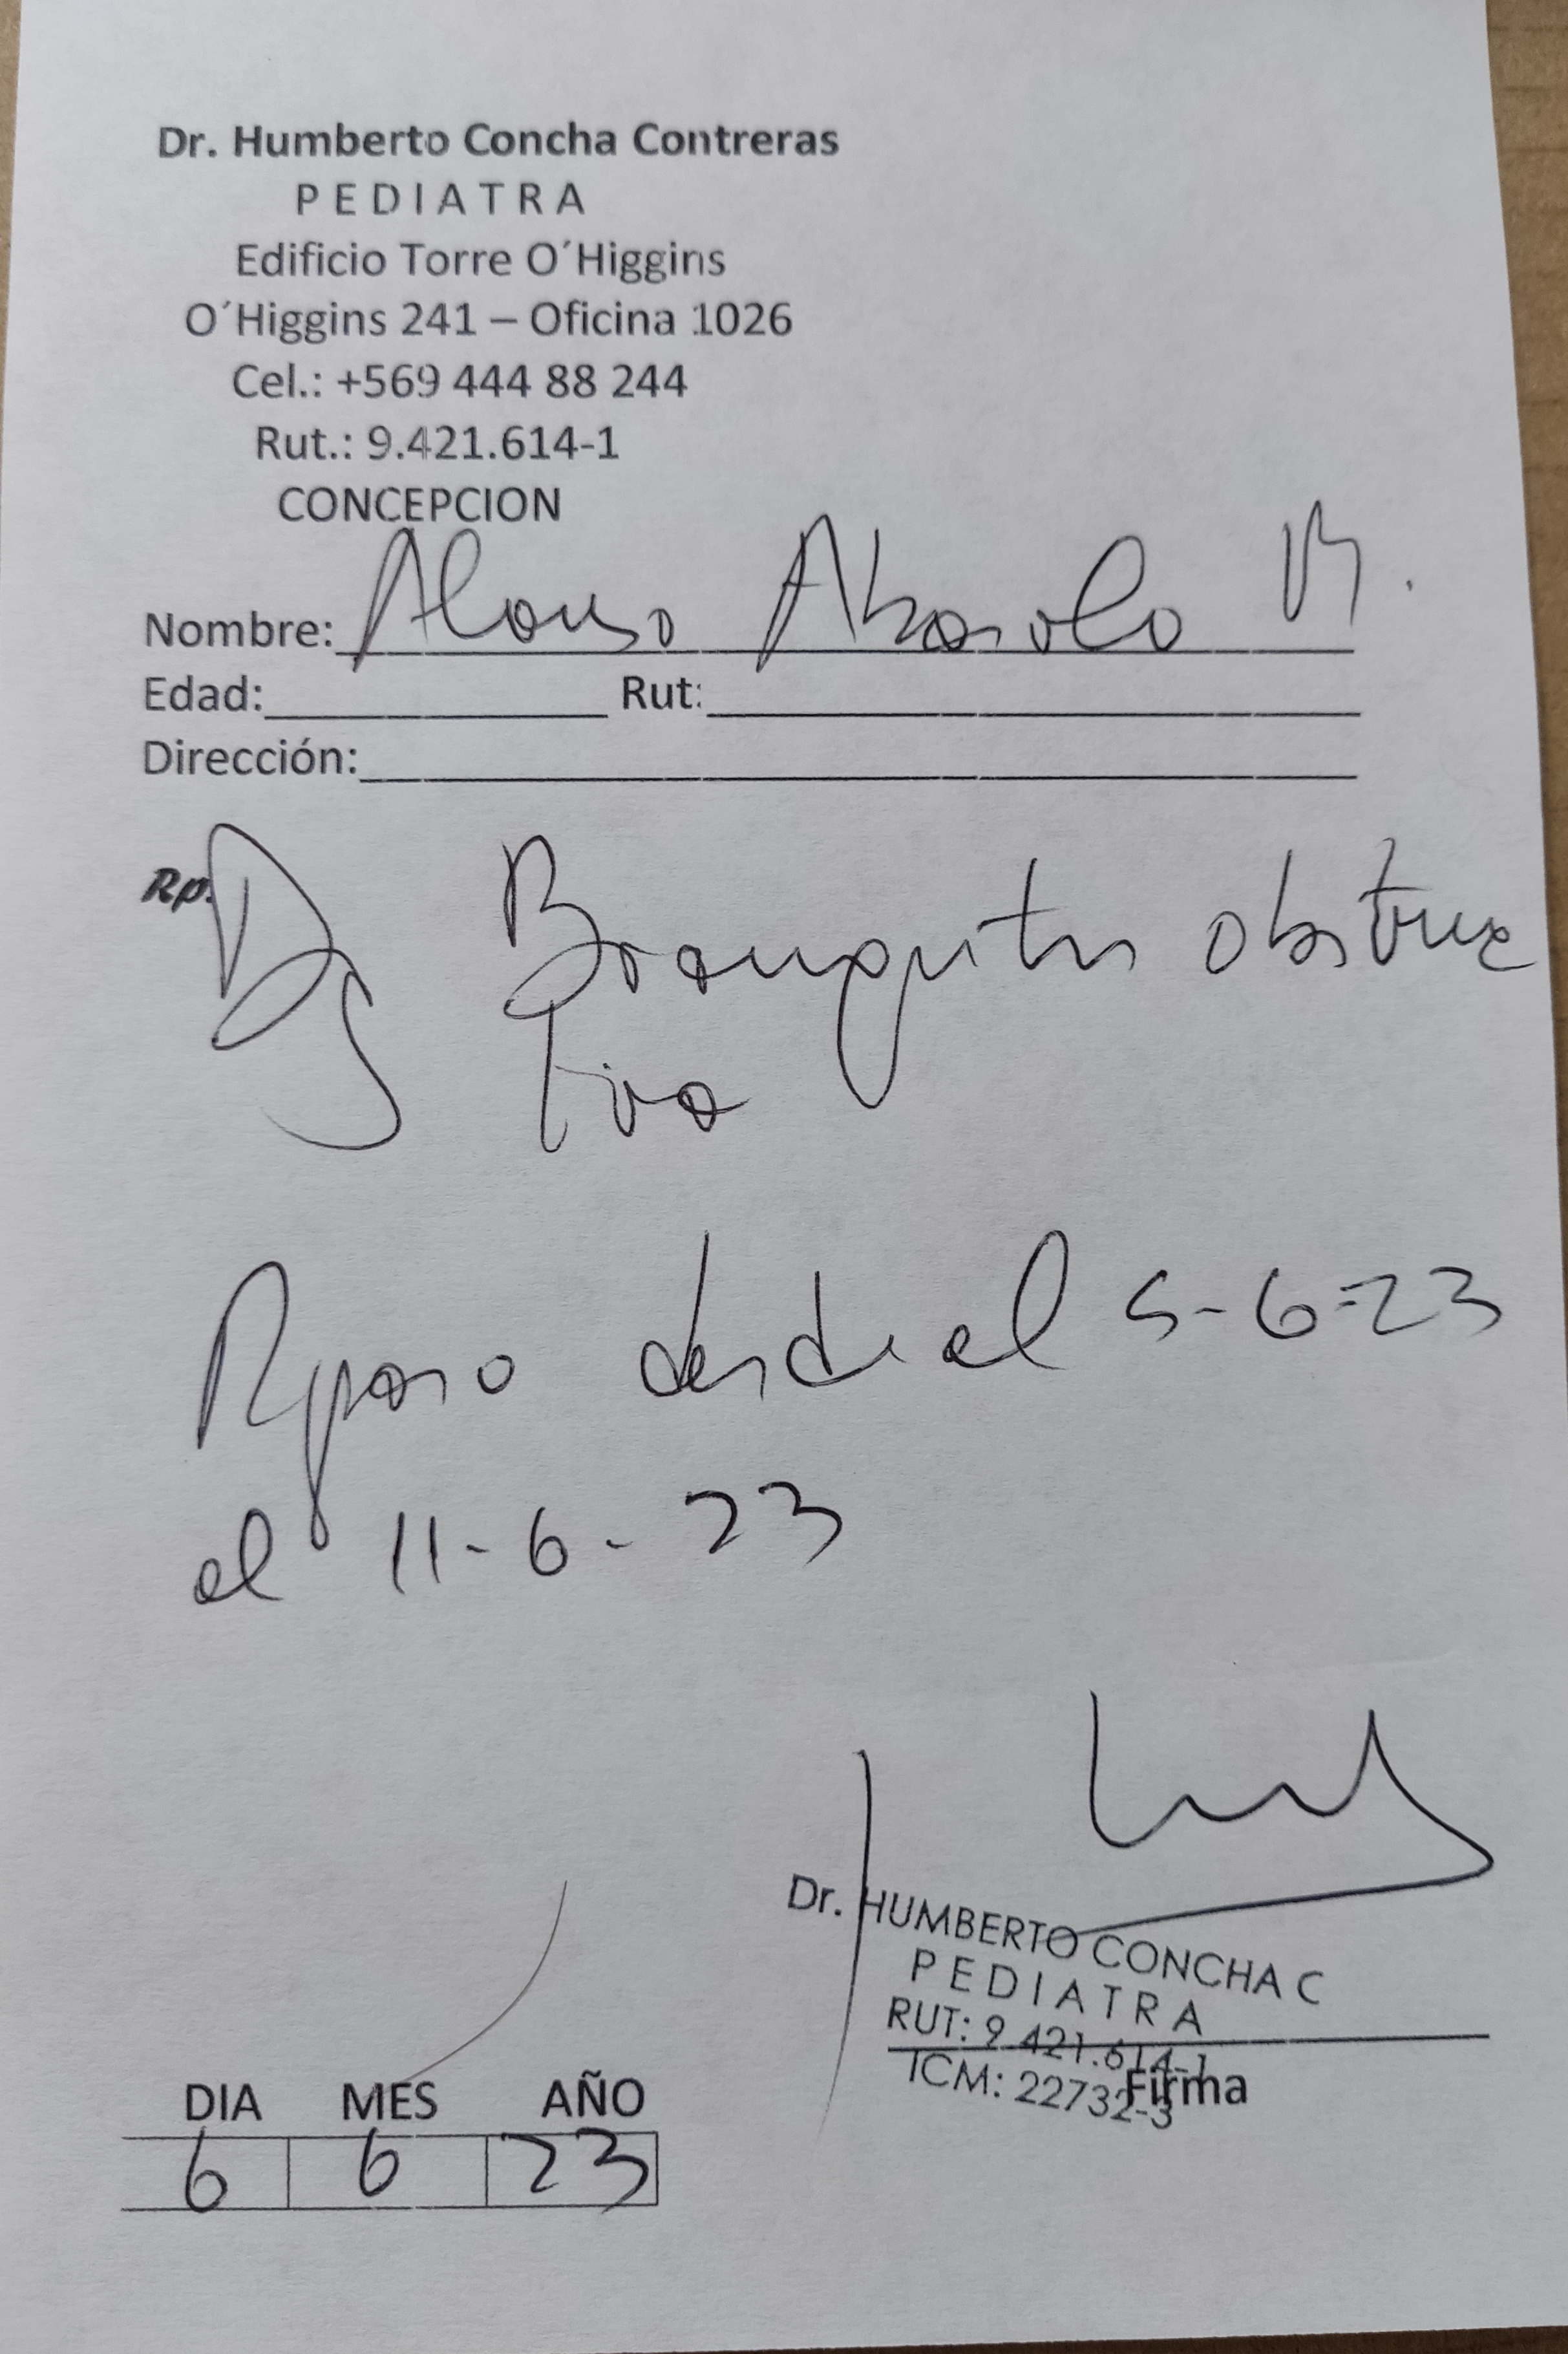 Dr. Humberto Concha Contreras
PEDIATRA
Edificio Torre O´Higgins
O´Higgins 241 – Oficina 1026
Cel.: +569 444 88 244
Rut.: 9.421.614-1
CONCEPCION
Nombre: Alonso M.
Edad: Rut:
Dirección:
Rp. Dg Bronquitis obstruc
tiva
Reposo desde el 5-6-23
al 11-6-23
Dr. HUMBERTO CONCHA C
PEDIATRA
RUT: 9.421.614-1
ICM: 22732-3
Firma
DIA MES AÑO
6 6 23